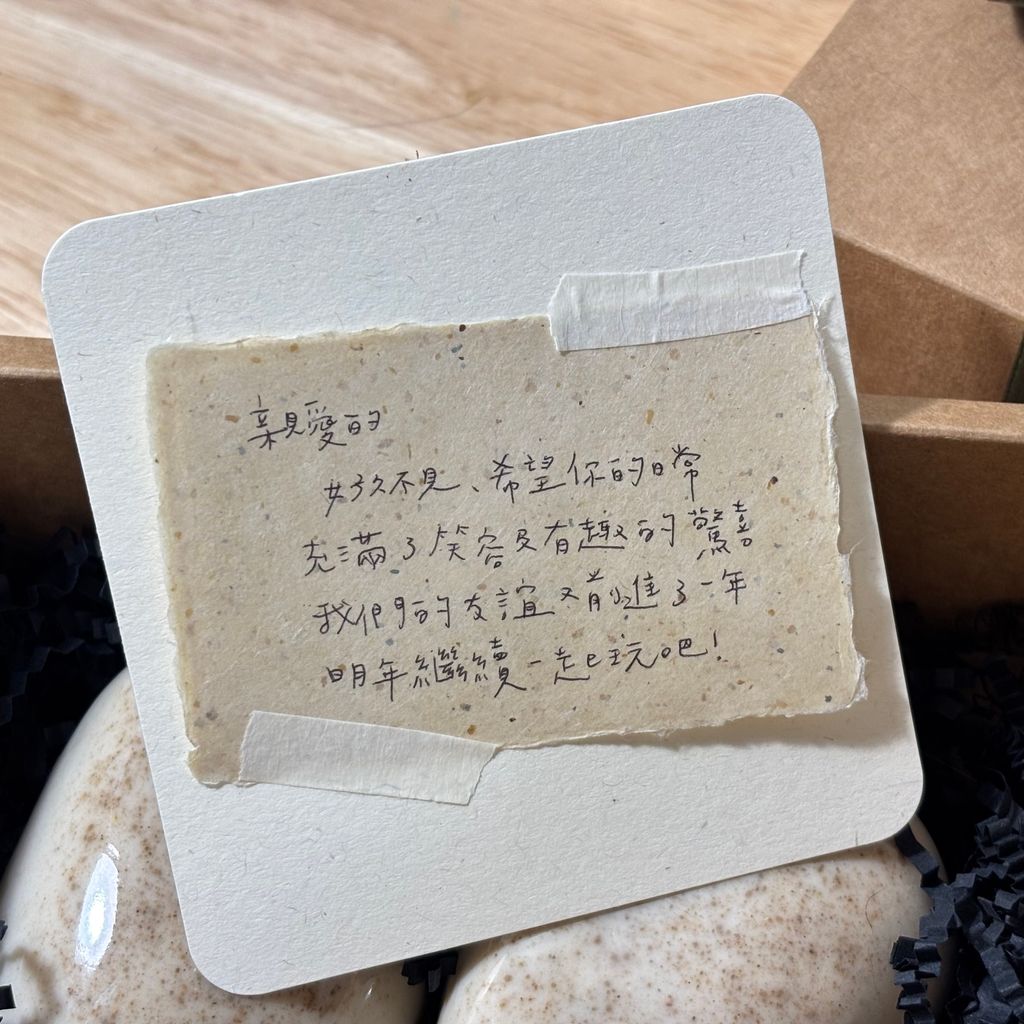 親愛的
好久不見、希望你的日常
充滿了笑容及有趣的驚喜
我們的友誼又前進了一年
明年繼續一起玩吧!